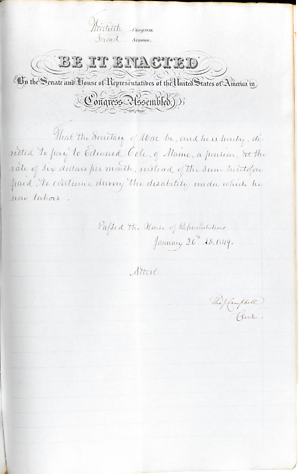 Thirtieth Congress
Second Session
BE IT ENACTED
By the Senate and House of Representatives of the United States of America in
Congress Assembled,
That the Secretary of War be, and he is hereby, di-
rected to pay to Edward Cole, of Maine, a pension at the
rate of six dollars per month, instead of the sum heretofore
paid, to continue during the disability under which he
now labors.
Passed the House of Representatives
January 26th 1849.
Attest
Campbell
Clerk.